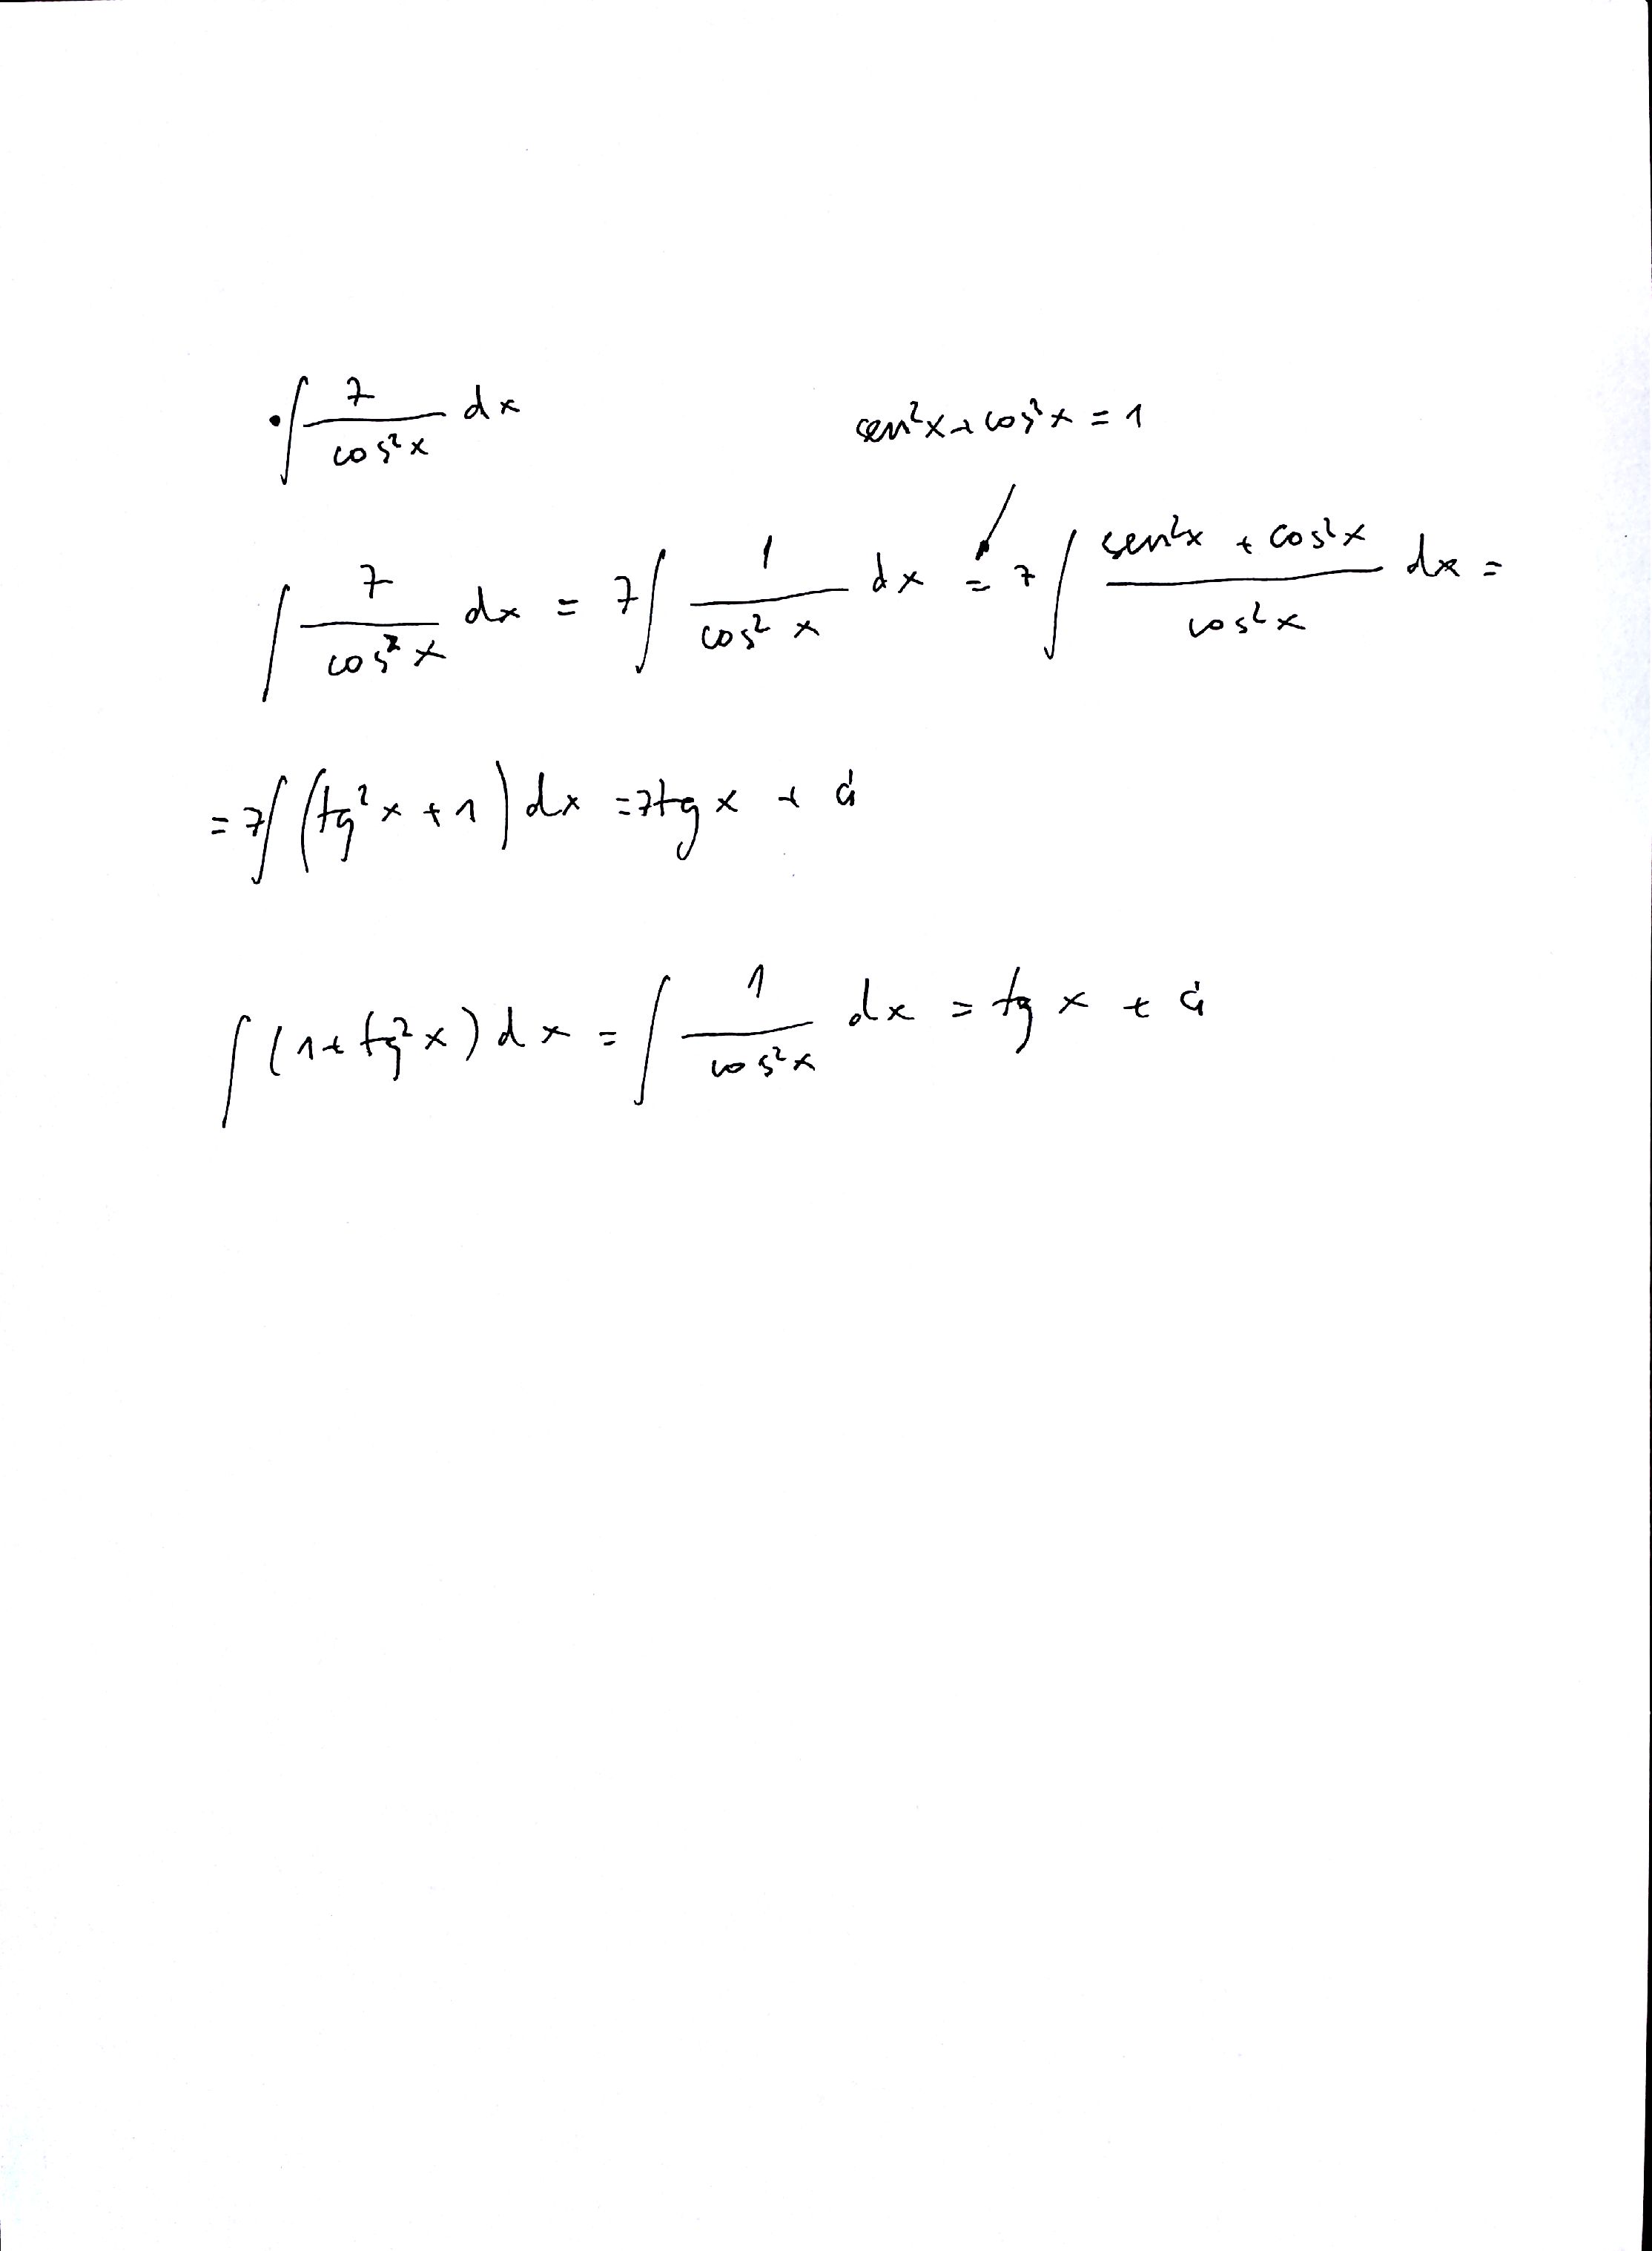 • ∫ 7/cos²x dx    sen²x + cos²x = 1
∫ 7/cos²x dx = 7∫ 1/cos²x dx = 7∫ (sen²x + cos²x)/cos²x dx =
= 7∫ (tg²x + 1) dx = 7tg x + C
∫ (1 + tg²x) dx = ∫ 1/cos²x dx = tg x + C